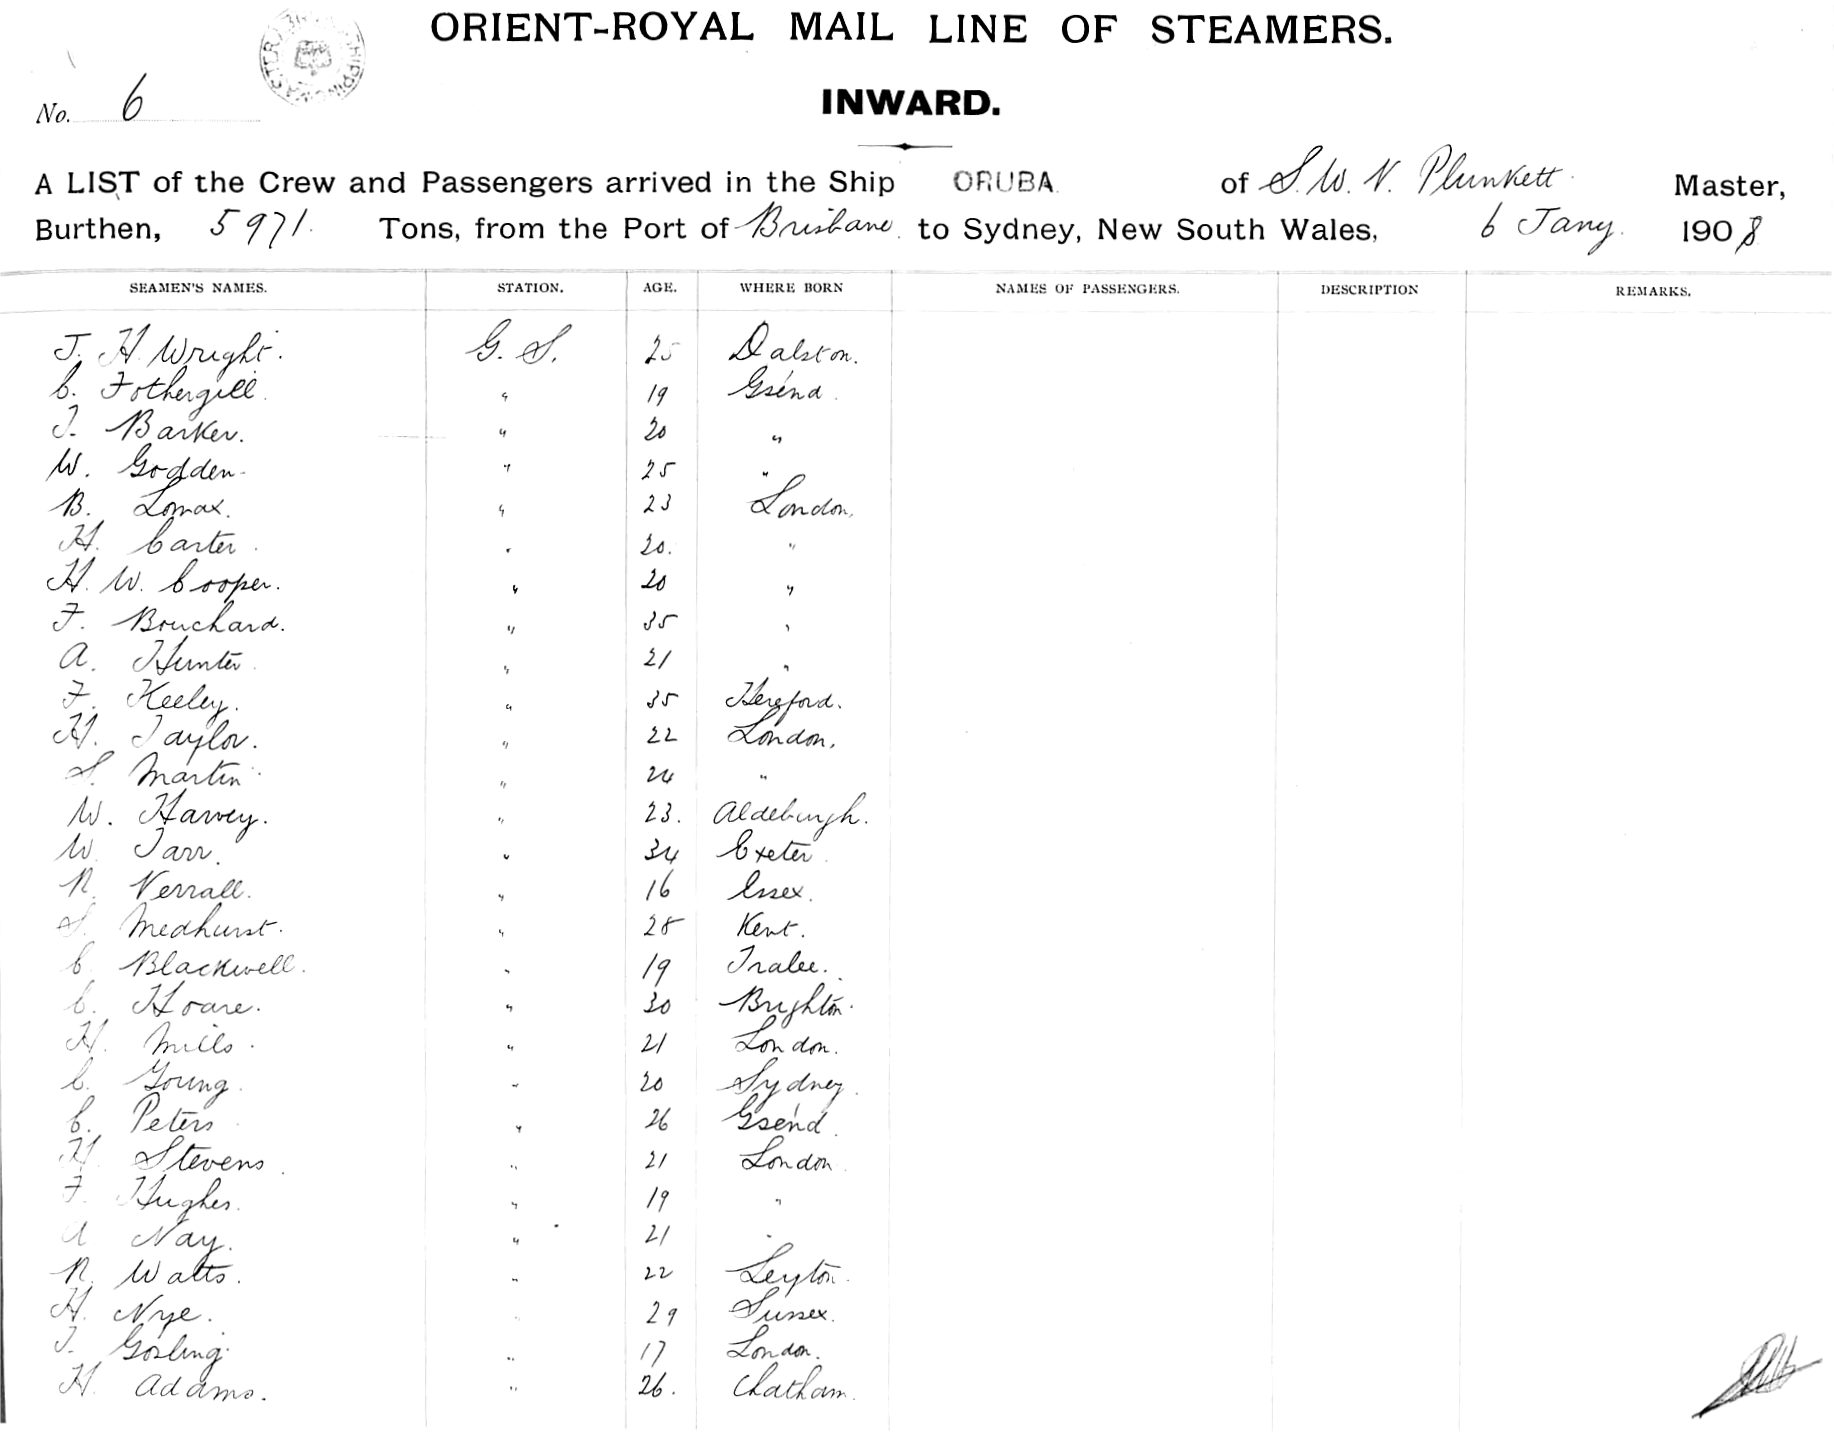 ORIENT-ROYAL MAIL LINE OF STEAMERS.
No. 6
INWARD.
A LIST of the Crew and Passengers arrived in the Ship ORUBA of S. W. V. Plunkett Master,
Burthen, 5971. Tons, from the Port of Brisbane to Sydney, New South Wales, 6 Jany. 1908
SEAMEN'S NAMES. STATION. AGE. WHERE BORN NAMES OF PASSENGERS. DESCRIPTION REMARKS.
J. H. Wright. G. S. 25 Dalston.
C. Fothergill. " 19 Gs'end.
J. Barker. " 20 "
W. Godden " 25 "
B. Lomax. " 23 London.
H. Carter. " 20. "
H. W. Cooper. " 20 "
F. Bouchard. " 35 "
A. Hunter. " 21 "
F. Keeley. " 35 Hereford.
H. Taylor. " 22 London.
S. Martin. " 24 "
W. Harvey. " 23. Aldeburgh.
W. Tarr. " 34 Exeter.
R. Verrall. " 16 Essex.
S. Medhurst. " 28 Kent.
C. Blackwell. " 19 Tralee.
C. Hoare. " 30 Brighton.
H. Mills. " 21 London.
C. Young. " 20 Sydney.
C. Peters " 26 Gs'end.
H. Stevens. " 21 London.
F. Hughes. " 19 "
A Nay. " 21 "
R. Watts. " 22 Leyton.
H. Nye. " 29 Sussex.
J. Gosling. " 17 London.
H. Adams. " 26. Chatham.